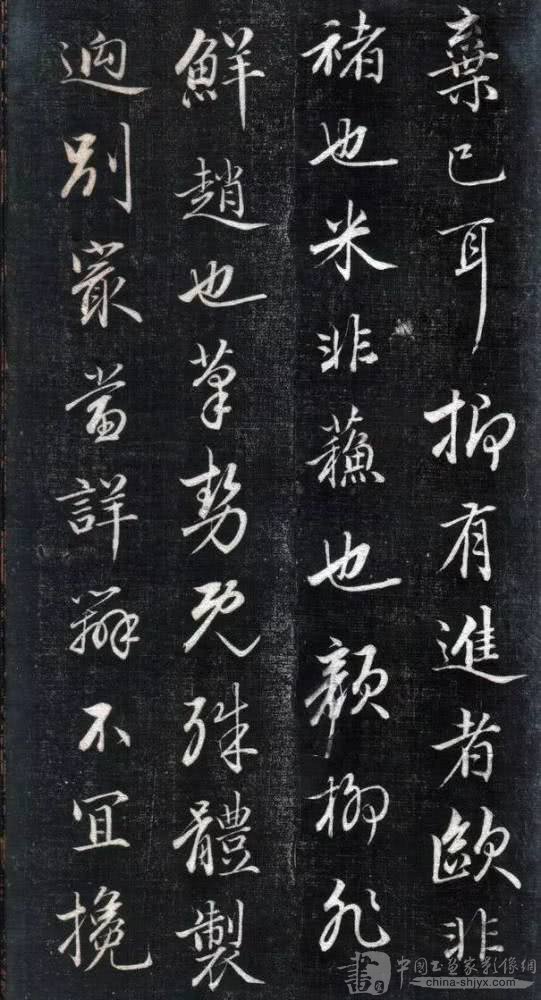 棄已耳抑有進者歐非
褚也米非蘓也顔柳非
鮮趙也筆勢既殊體製
逈別最當詳辨不宜攙
中国书画家影像網
china-shjyx.com